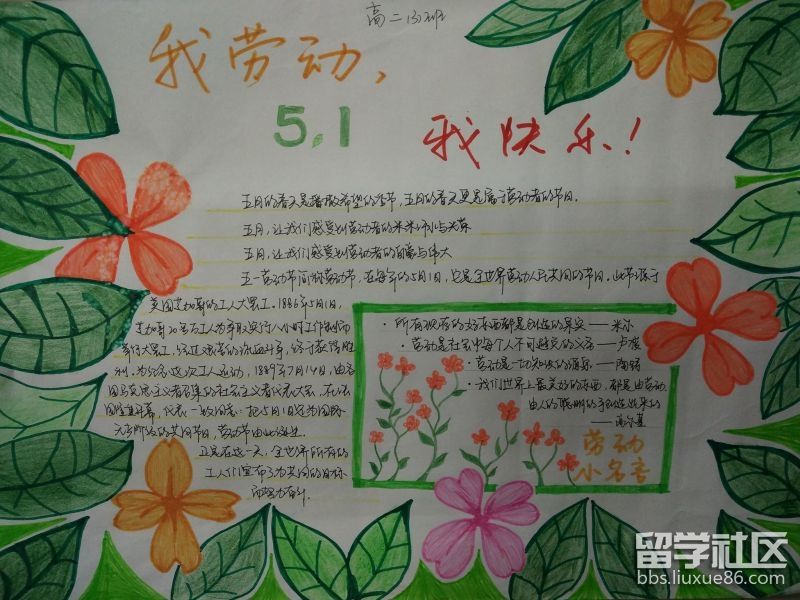 高二(3)班
我劳动，
5.1
我快乐！
五月的春天是播散希望的季节，五月的春天更是属于劳动者的节日。
五月，让我们感受到劳动者的光荣
五月，让我们感受到劳动者的自豪与伟大
五一劳动节简称劳动节，在每年的5月1日，它是全世界劳动人民共同的节日。此节源于
美国芝加哥的工人大罢工。1886年5月1日，
芝加哥20多万工人为争取实行八小时工作制而
举行大罢工，经过艰苦的流血斗争，终于获得胜
利。为纪念这次工人运动，1889年7月14日，由各
国马克思主义者召集的社会主义者代表大会，在法
国隆重开幕，代表一致同意：把5月1日定为国际
无产阶级的共同节日，劳动节由此诞生
正是在这一天，全世界所有的
工人们宣布了为共同的目标
而努力奋斗。
· 所有现存的好东西都是创造的果实——米尔
· 劳动是社会中每个人不可避免的义务——卢梭
· 劳动是一切知识的源泉——陶铸
· 我们世界上最美好的东西，都是由劳动、
由人的聪明的手创造出来的
——高尔基
劳动
小名言
留学社区
bbs.liuxue86.com